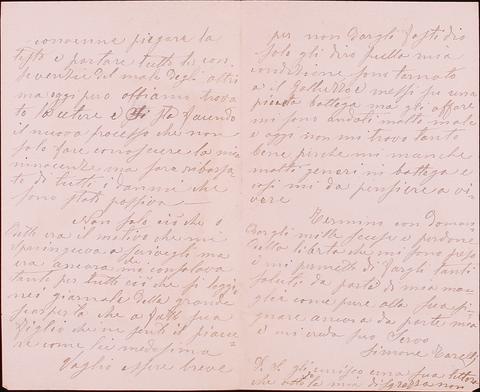 convenne piegare la
testa e portare tutte le con
seguenze del male degli altri
ma oggi pero abbiamo trova
to la autore e si sta facendo
il nuovo processo che non
solo fare conoscere la mia
innocenza ma sara ribassa
to di tutti i danni che
sono stati passiva
Non solo ciò che o
detto era il motivo che mi
spingeva a scrivegli ma
era ancora che mi consolava
tanto per tutto ciò che si legge
nei giornale della grande
scoperta che a fatto sua
figlio che ne senti il piace
re come lei medesima
Voglio essere breve
per non dargli fastidio
solo gli diro quella mia
condizione sono tornato
a il Galluzzo e messi su una
piccola bottega ma gli affare
mi sono andati molto male
e oggi non mi trovo tanto
bene perche mi manche
molti generi in bottega e
cosi mi da pensiere a vi
vere
Termino con doman
dargli mille scuse e perdone
della libertà che mi sono preso
e mi permetti di fargli tanti
saluti da parte di mia mo
glie come pure alla sua si
gnora ancora da parte mia
e mi creda suo Servo
Simone
P. S. gli unisco una sua lettera
che dato la mia disgrazia non